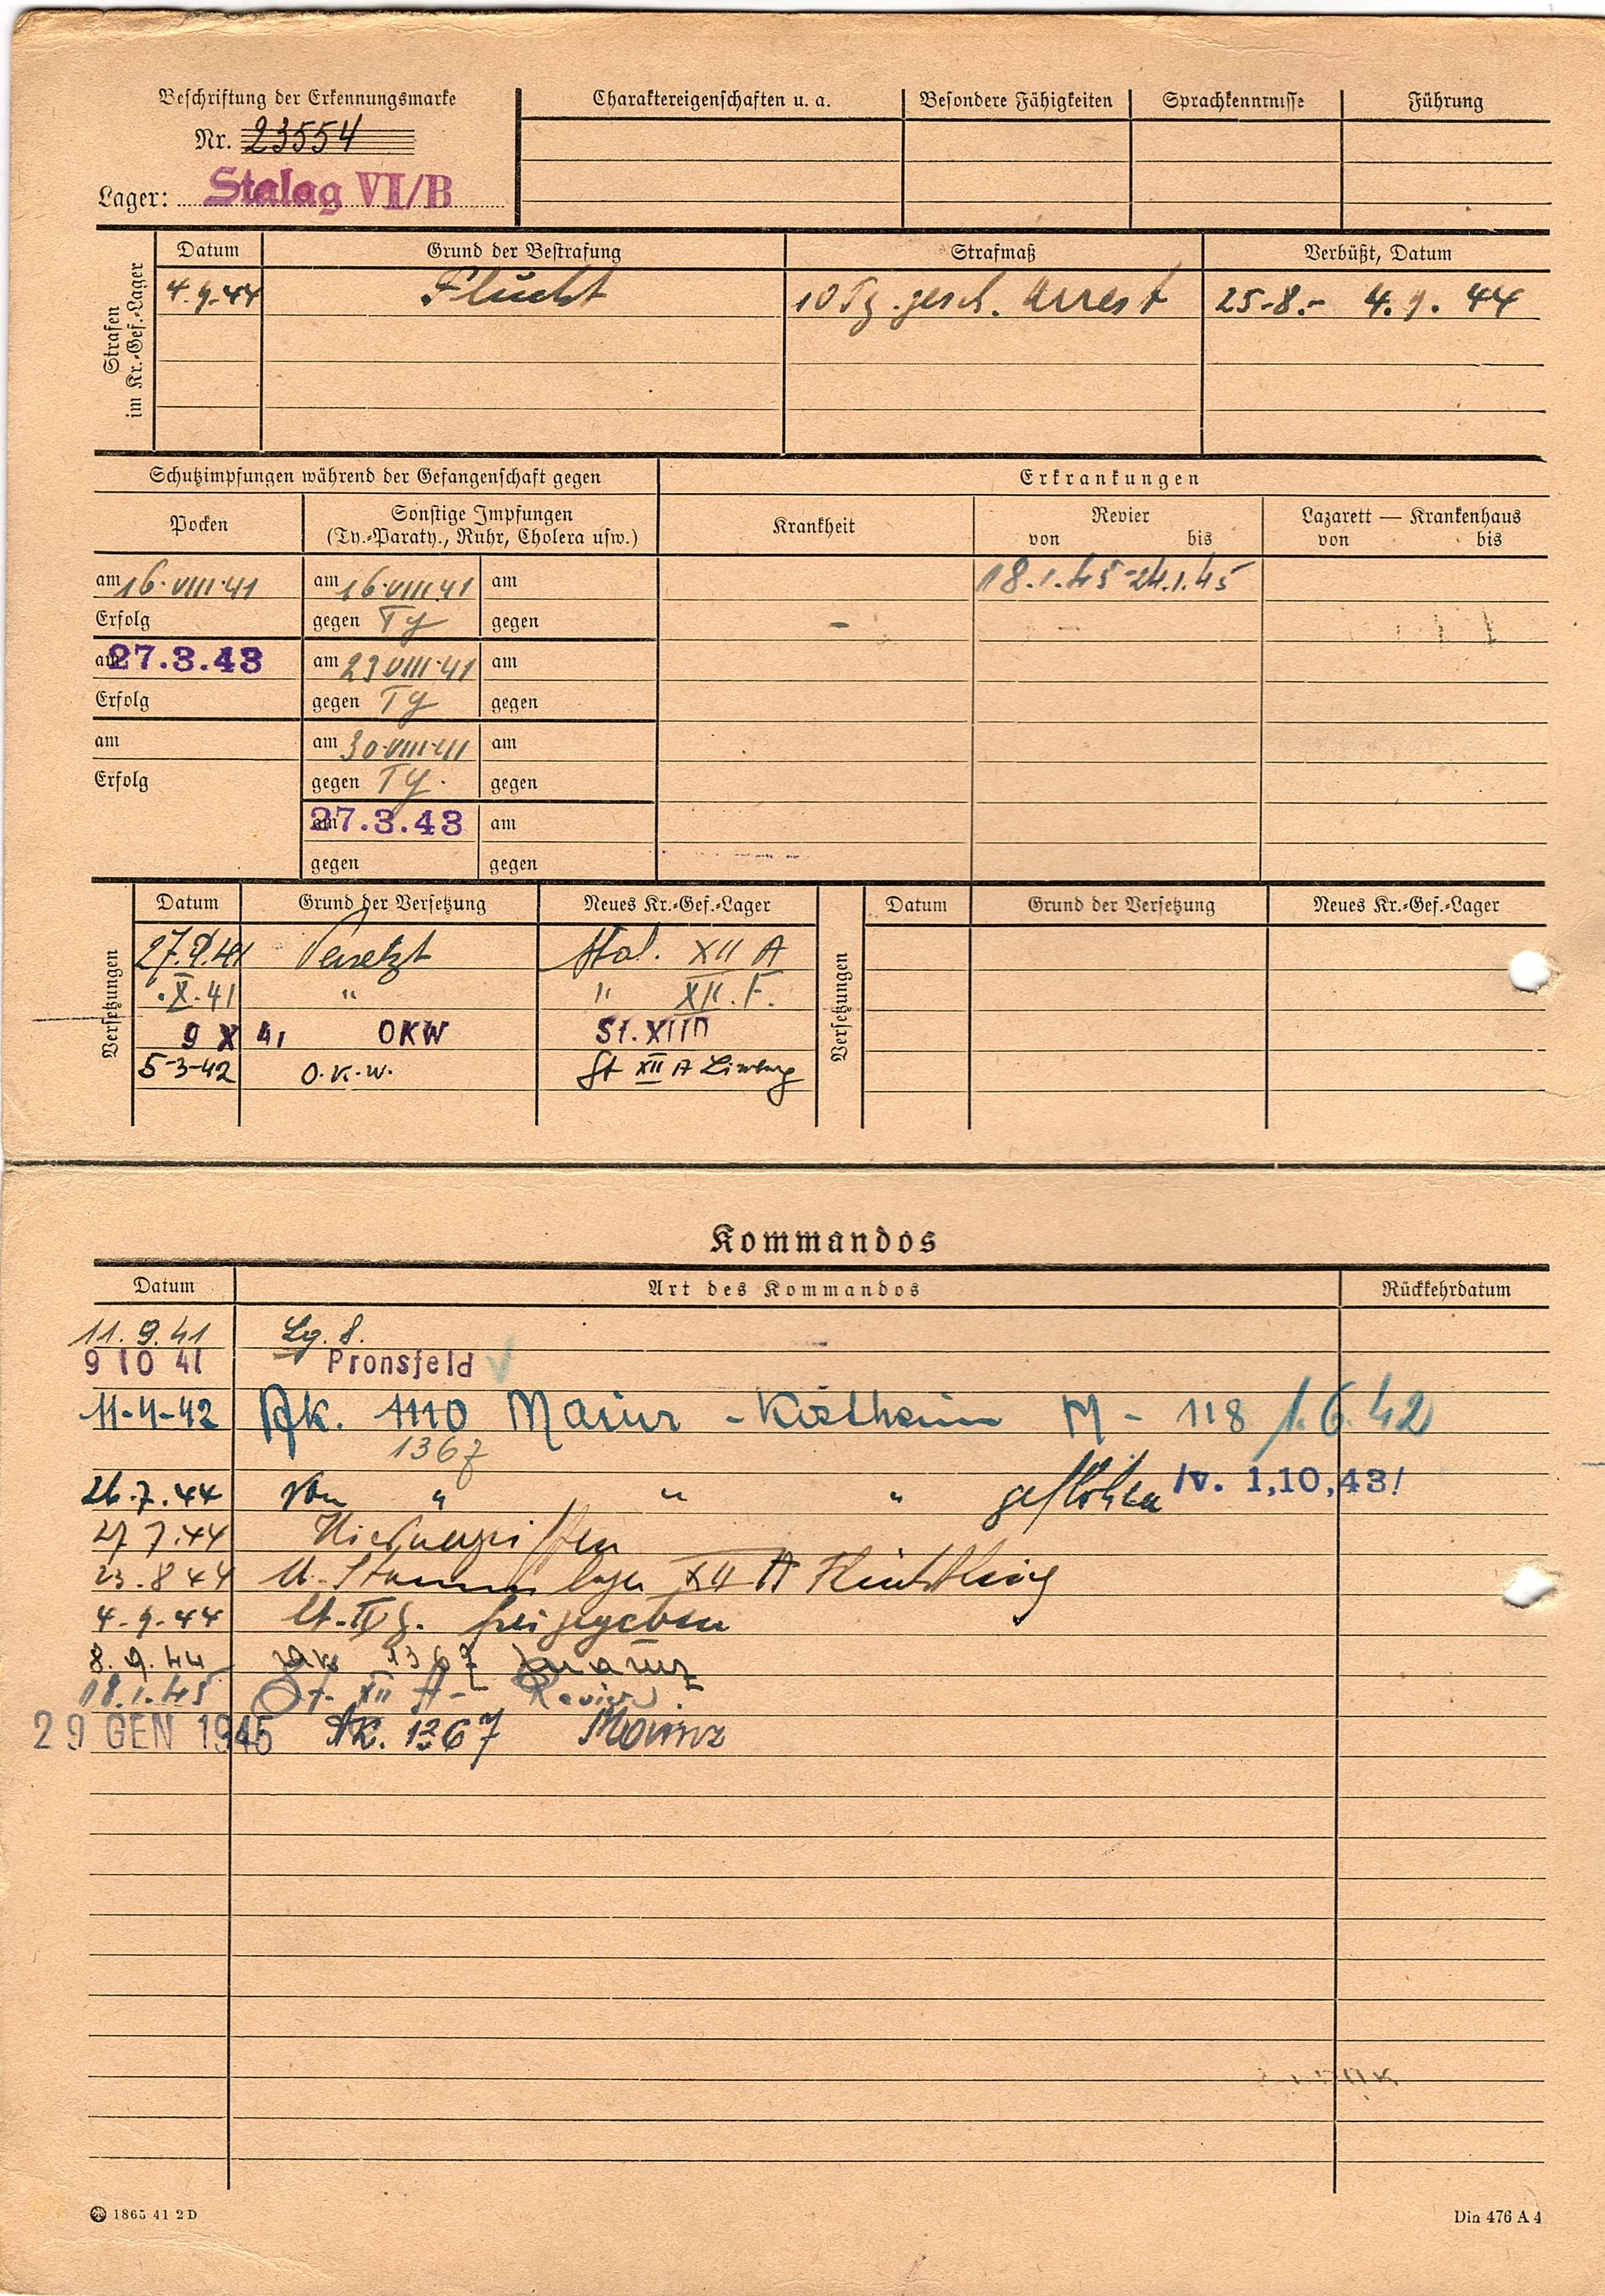 Beschriftung der Erkennungsmarke
Nr. 23554
Lager: Stalag VI/B
Charaktereigenschaften u. a. Besondere Fähigkeiten Sprachkenntnisse Führung
Strafen im Kr.-Gef.-Lager
Datum Grund der Bestrafung Strafmaß Verbüßt, Datum
4.9.44 Flucht 10 Tg. gesch. Arrest 25.8.- 4.9.44
Schutzimpfungen während der Gefangenschaft gegen Erkrankungen
Pocken Sonstige Impfungen (Ty.-Paraty., Ruhr, Cholera usw.) Krankheit Revier von bis Lazarett — Krankenhaus von bis
am 16.VIII.41 am 16.VIII.41 am 18.1.45-24.1.45
Erfolg gegen Ty gegen
am 27.3.43 am 23.VIII.41 am
Erfolg gegen Ty gegen
am am 30.VIII.41 am
Erfolg gegen Ty. gegen
am 27.3.43 am
gegen gegen
Versetzungen
Datum Grund der Versetzung Neues Kr.-Gef.-Lager
Versetzungen
Datum Grund der Versetzung Neues Kr.-Gef.-Lager
Versetzt Stal. XII A
.X.41 " " XII.F.
9 X 41 OKW St. XII D
5-3-42 O.K.W. St XII A Limburg
Kommandos
Datum Art des Kommandos Rückkehrdatum
11.9.41 Lg. 8.
9 10 41 Pronsfeld
11-4-42 Ak. 1110 Mainz - Kostheim M - 118 1.6.42
1367
26.7.44 Von " " " geflohen v. 1,10,43!
27.7.44 Wiederergriffen
23.8.44 Stammlager XII A
4-9-44 freigegeben
8.9.44 1367 Mainz
18.1.45 St. XII A - Revier.
29 GEN 1945 AK. 1367 Mainz
1865 41 2 D
Din 476 A 4